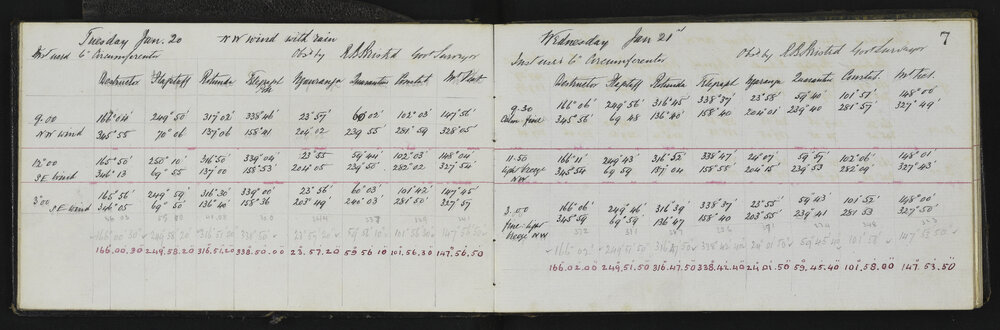 Tuesday Jan. 20 NW wind with rain
Inst used 6" Circumferenter Obsd by R.B. Bristed Govt Surveyor
Destructor Flagstaff Rotunda Telegraph Pole Ngauranga Quarantine Constat. Mt Vict.
9.00 166°04' 249°50' 317°02' 338°46' 23°57' 60°02' 102°03' 147°56'
NW wind 345°55 70°06 137°06 158°41 204°02 239°55 281°59 328°05
12°00 165°50' 250°10' 316°50' 339°04' 23°55 59°44' 102°03' 148°04'
SE wind 346°13 69°55 137°00 158°53 204°05 239°50 282°02 327°54
3°00 165°56' 249°59' 316°30' 339°00' 23°56' 60°03' 101°42' 147°45'
SE wind 346°05 69°50' 136°40' 158°36 203°49 240°03 281°50' 327°57
166.00.30 249.58.20 316.51.20 338.50.00 23.57.20 59 56 10 101.56.30 147.56.50
7
Wednesday Jan 21st
Inst used 6" Circumferenter Obsd by R.B. Bristed Govt Surveyor
Destructor Flagstaff Rotunda Telegraph Ngaranga Quarantine Constat. Mt Vict.
9.30 166°06' 249°56' 316°45' 338°37' 23°58' 59°40' 101°57' 148°00'
Calm fine 345°56' 69 48 136°40' 158°40 204°01 239°40 281°57 327°49'
11.50 166°11' 249°43' 316°52 338°47 24°07' 59°57 102°06' 148°01'
Light Breeze NW 345°54 69°59 137°04 158°58 204°15 239°53 282°09 327°43'
3.00 166°06' 249°46' 316°39' 338°37' 23°55' 59°43 101°52' 148°00'
Fine light Breeze NW 345°59 69°59' 136°47' 158°40 203°55 239°41 281 53 327°50'
166.02.00 249.51.50 316.47.50 338.42.40 24.01.50 59.45.40 101.58.00 147.53.50